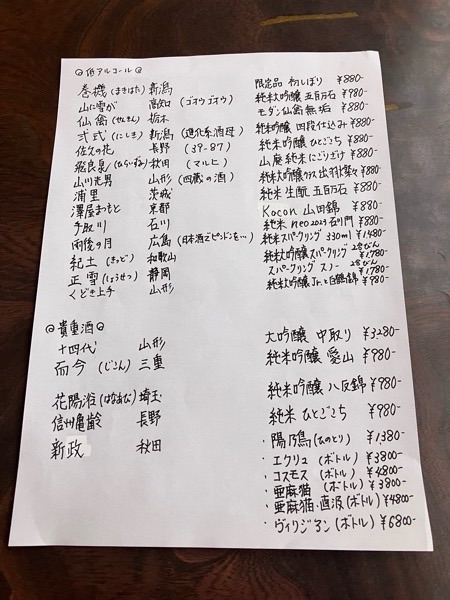 ◎低アルコール◎
巻機(まきはた) 新潟 限定品 初しぼり ¥880-
山に雪が 高知(ゴオウゴオウ) 純米大吟醸 五百万石 ¥980-
仙禽(せんきん) 栃木 モダン仙禽無垢 ¥880-
弌式(にしき) 新潟(進化系酒母) 純米大吟醸 四段仕込み ¥880-
佐久の花 長野(39-87) 純米吟醸 ひとごこち ¥880-
飛良泉(ひらいずみ) 秋田(マルヒ) 山廃純米にごりざけ ¥880-
山川光男 山形(四蔵の酒) 純米大吟醸 出羽燦々 ¥880-
浦里 茨城 純米 生酛 五百万石 ¥880-
澤屋まつもと 京都 Kocon 山田錦 ¥880-
手取川 石川 純米 neo2023 石川門 ¥880-
雨後の月 広島(日本酒でピンドンを…) 純米スパークリング 330ml ¥1,480-
紀土(きっど) 和歌山 純米大吟醸スパークリング ¥1,780-
正雪(しょうせつ) 静岡 スパークリング スノー ¥1,780-
くどき上手 山形 純米大吟醸 Jr.と白鶴錦 ¥980-
◎貴重酒◎
十四代 山形 大吟醸 中取り ¥3,280-
而今(じこん) 三重 純米吟醸 愛山 ¥980-
花陽浴(はなあび) 埼玉 純米吟醸 八反錦 ¥980-
信州亀齢 長野 純米 ひとごこち ¥980-
新政 秋田 ・陽乃鳥(ひのとり) ¥1,380-
・エクリュ(ボトル) ¥3800-
・コスモス(ボトル) ¥4800-
・亜麻猫(ボトル) ¥3800-
・亜麻猫・直汲(ボトル) ¥4800-
・ヴィリジアン(ボトル) ¥6800-